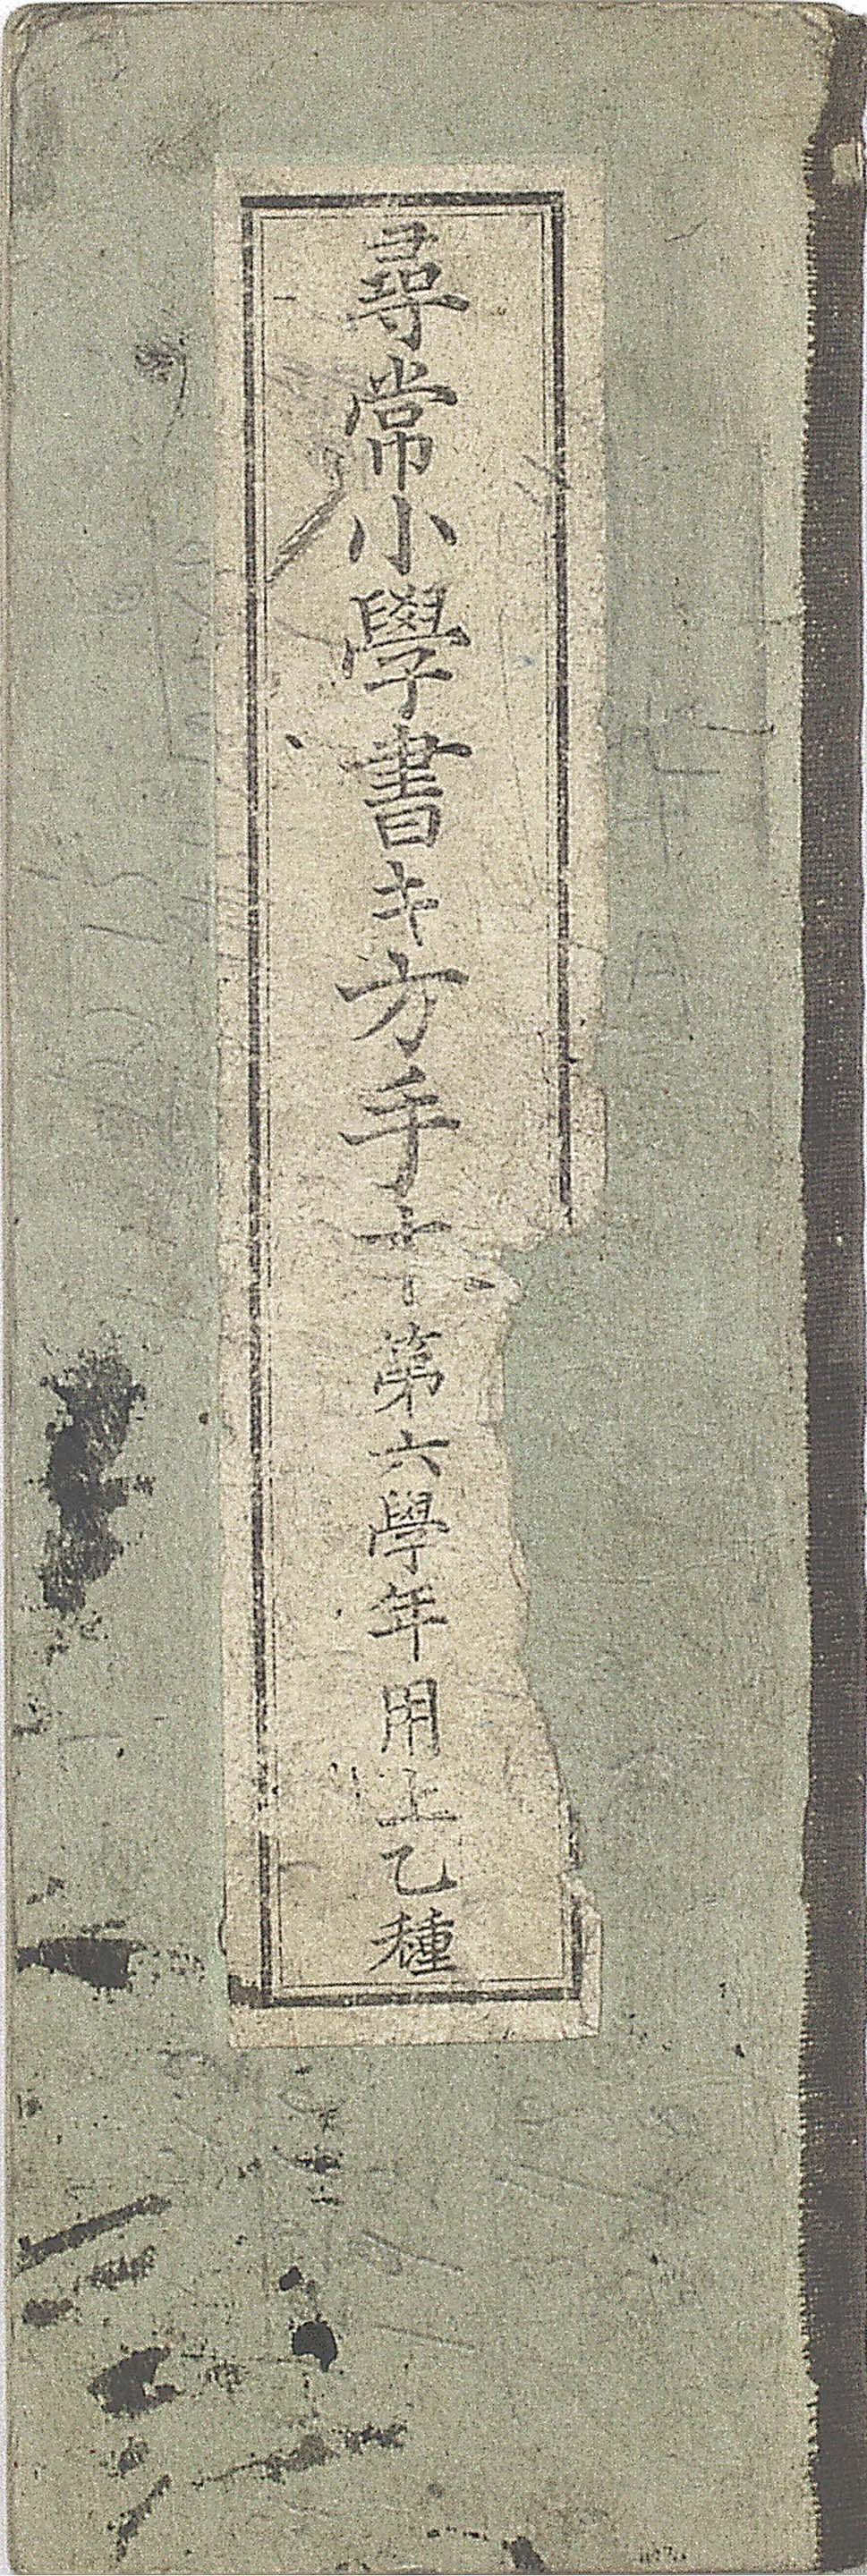 尋常小學書キ方手本第六學年用上乙種